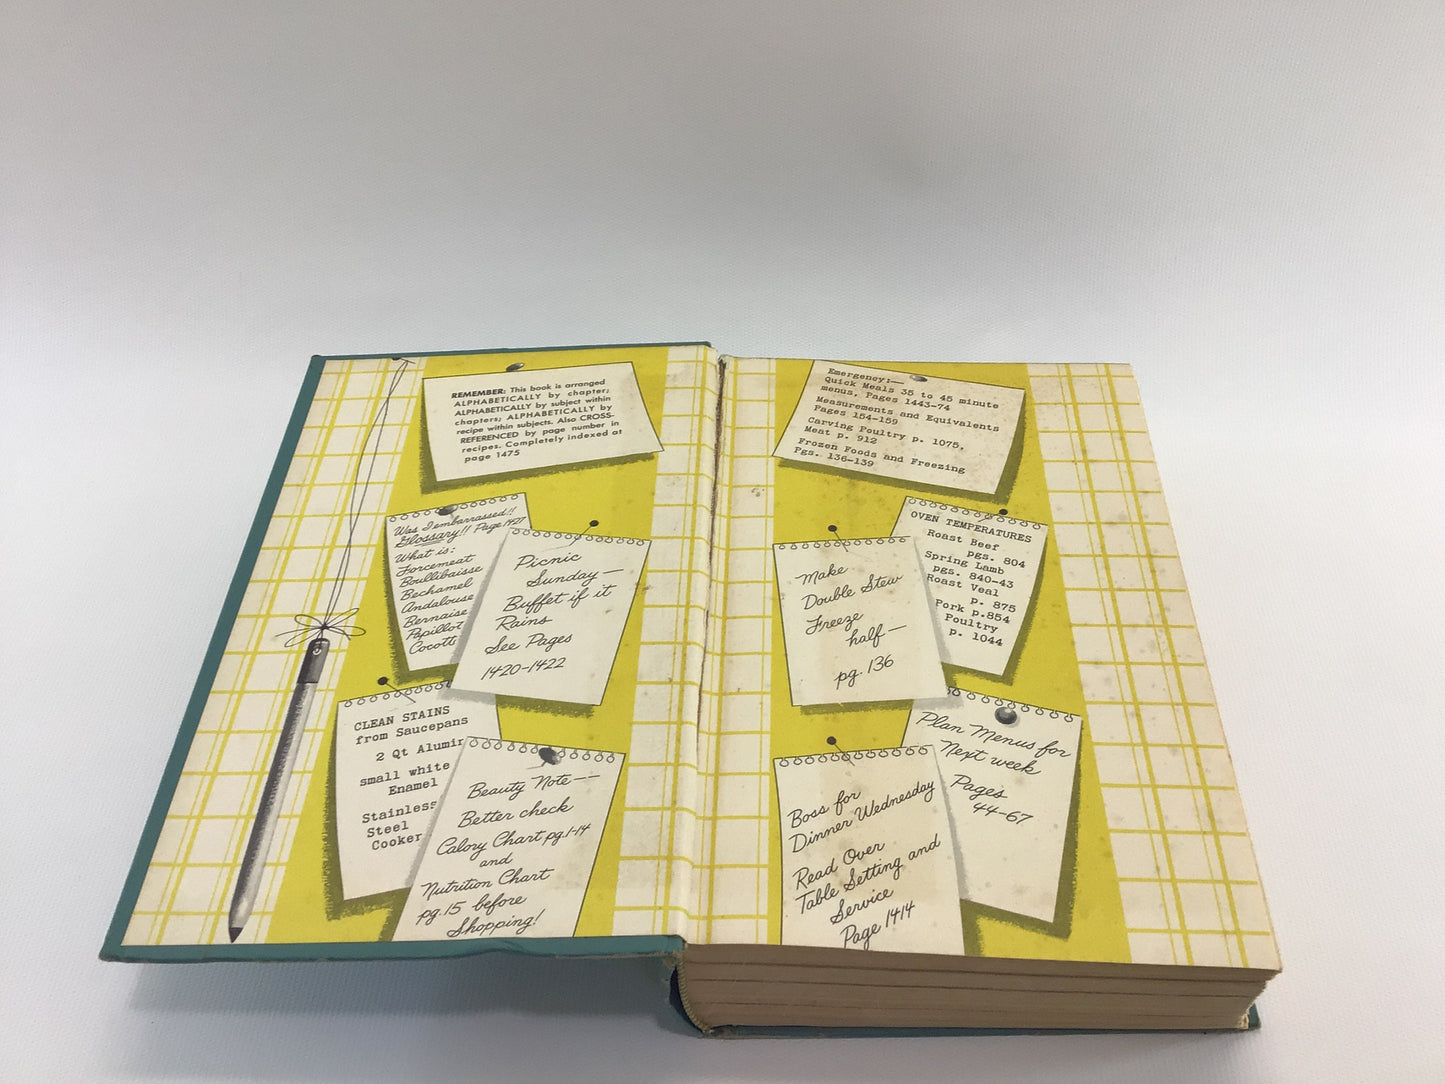 REMEMBER: This book is arranged
ALPHABETICALLY by chapter;
ALPHABETICALLY by subject within
chapters; ALPHABETICALLY by
recipe within subjects. Also CROSS-
REFERENCED by page number in
recipes. Completely indexed at
page 1475
Was I embarrassed!!
Glossary!! Page 1427
What is:
Forcemeat
Boullibaisse
Bechamel
Andalouse
Bernaise
Papillot
Cocott
Picnic
Sunday—
Buffet if it
Rains
See Pages
1420-1422
CLEAN STAINS
from Saucepans
2 Qt Alumin
small white
Enamel
Stainless
Steel
Cooker
Beauty Note——
Better check
Calory Chart pg.1-14
and
Nutrition Chart
pg.15 before
Shopping!
Emergency:—
Quick Meals 35 to 45 minute
menus, Pages 1443-74
Measurements and Equivalents
Pages 154-159
Carving Poultry p. 1075,
Meat p. 912
Frozen Foods and Freezing
Pgs. 136-139
Make
Double Stew
Freeze
half—
pg. 136
OVEN TEMPERATURES
Roast Beef
pgs. 804
Spring Lamb
pgs. 840-43
Roast Veal
p. 875
Pork p.854
Poultry
p. 1044
Plan Menus for
Next week
Pages
44-67
Boss for
Dinner Wednesday
Read Over
Table Setting and
Service
Page 1414